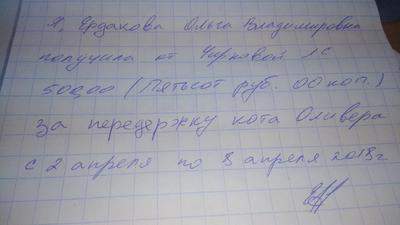 Я, Ердакова Ольга Владимировна
получила от Чирковой
500,00 (Пятьсот руб. 00 коп.)
за передержку кота Оливера
с 2 апреля по 8 апреля 2018г